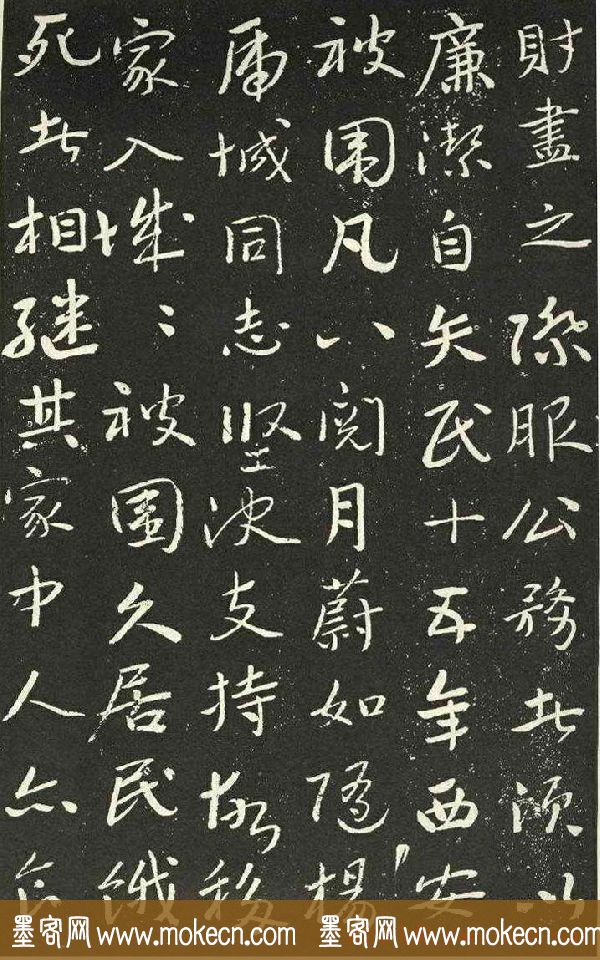 財盡之際服公務者須以
廉潔自矢民十五年西安
被围凡八閱月蔚如隨楊
虎城同志堅決支持故移
家入城〻被圍久居民餓
死者相継其家中人亦
墨客网 www.mokecn.com 墨客网 www.mokecn.com